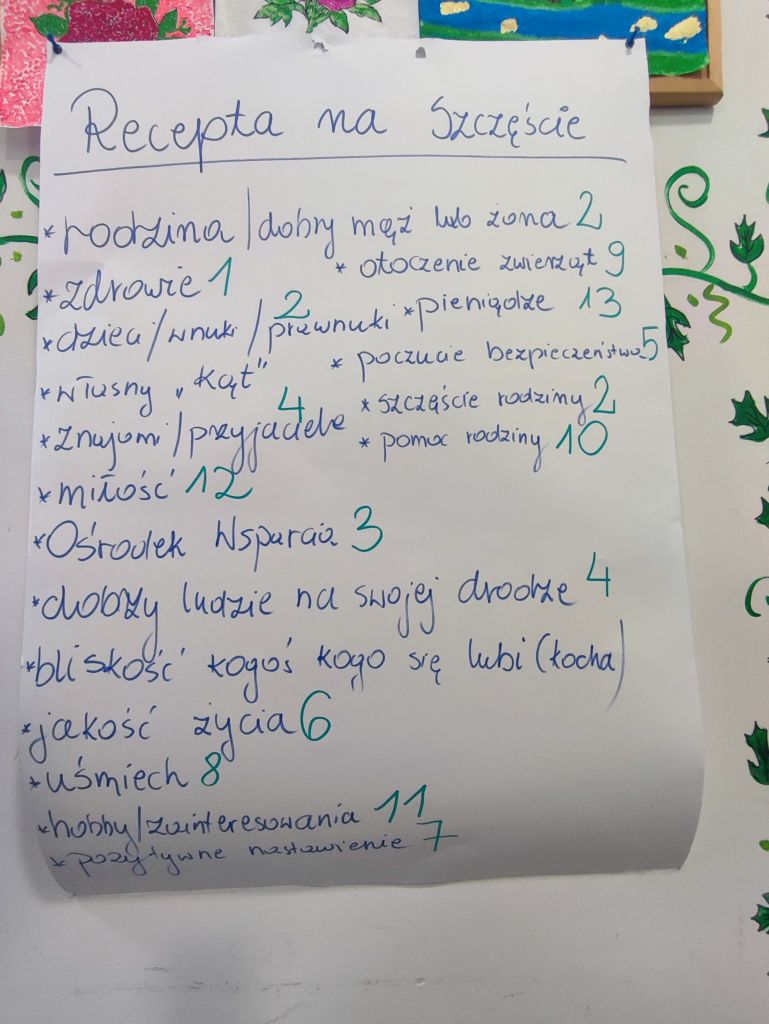 Recepta na Szczęście
* rodzina / dobry mąż lub żona 2
* zdrowie 1
* otoczenie zwierząt 9
* dzieci / wnuki / prawnuki 2
* pieniądze 13
* własny „Kąt"
* poczucie bezpieczeństwa 5
* znajomi / przyjaciele 4
* szczęście rodziny 2
* pomoc rodziny 10
* miłość 12
* Ośrodek Wsparcia 3
* dobrzy ludzie na swojej drodze 4
* bliskość kogoś kogo się lubi (kocha)
* jakość życia 6
* uśmiech 8
* hobby/zainteresowania 11
* pozytywne nastawienie 7